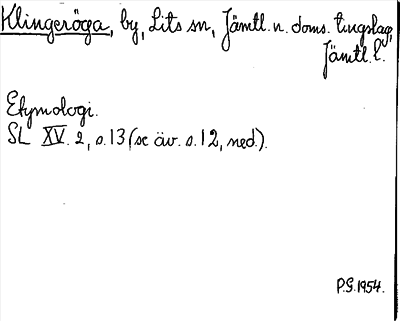 Klingeröga, by, Lits sn, Jämtl. n. doms. tingslag,
Jämtl. l.
Etymologi.
SL XV. 2, s. 13 (se äv. s. 12, ned.).
P.G. 1954.